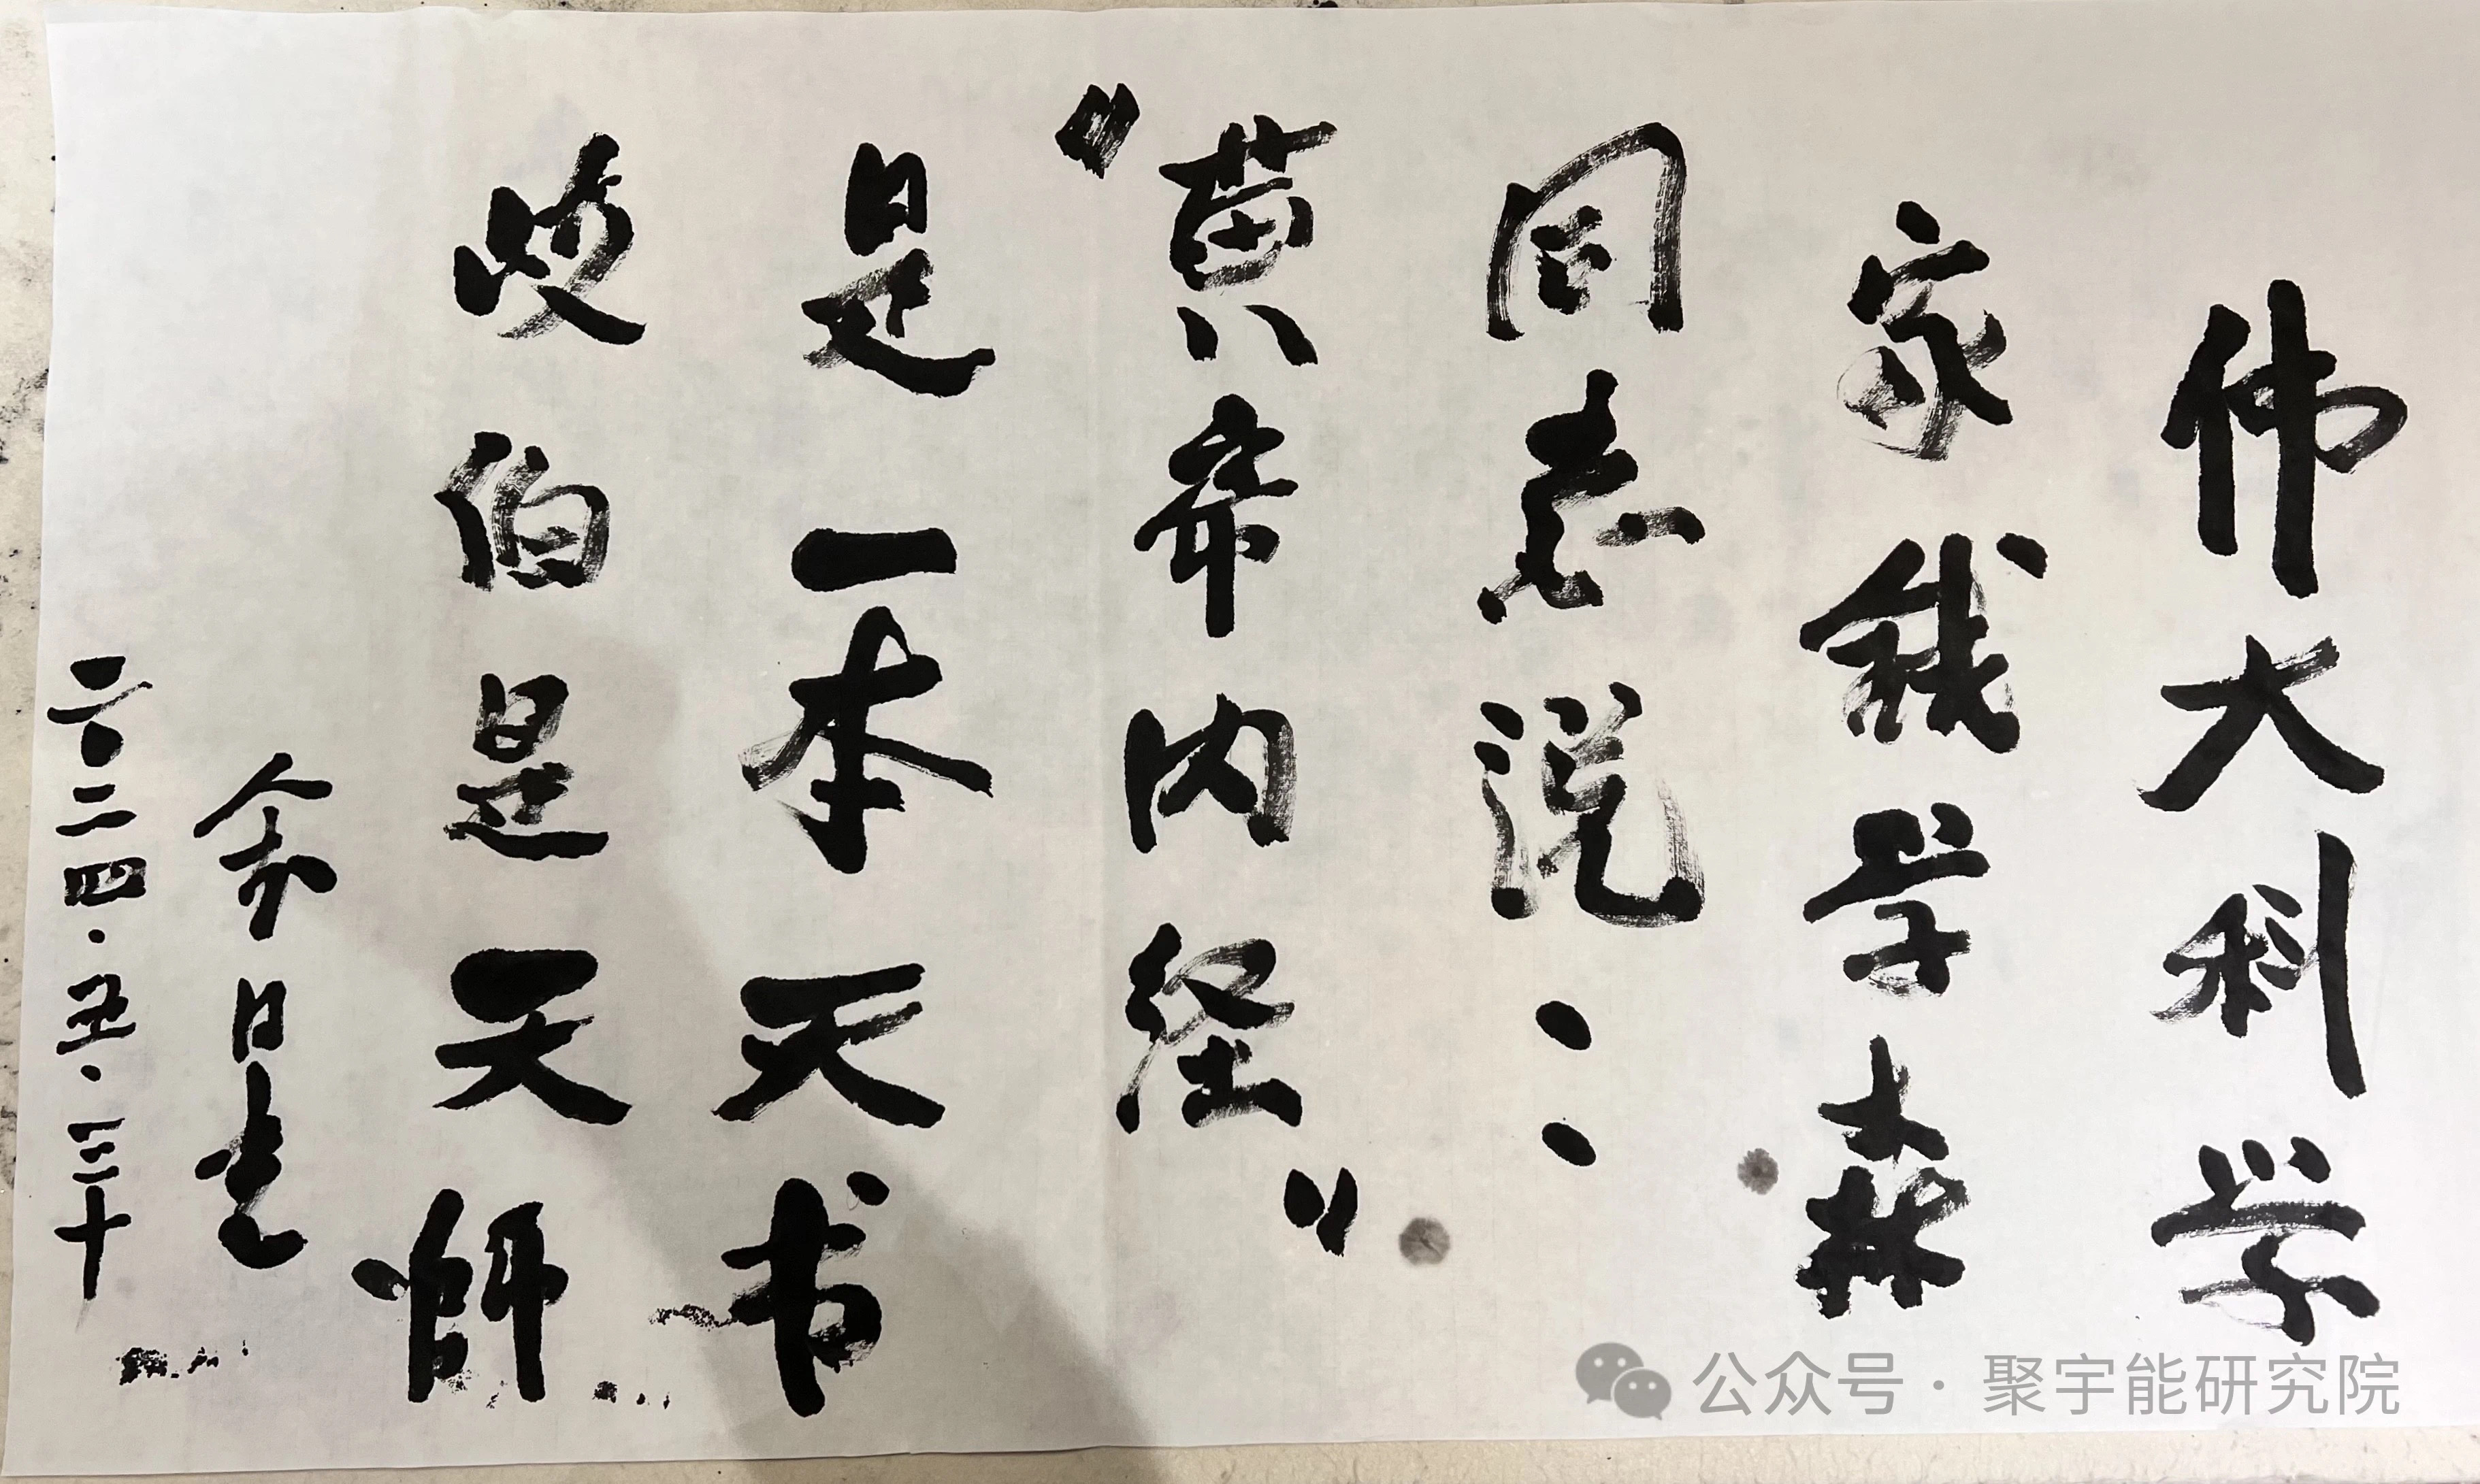 伟大科学
家钱学森
同志说：
“黄帝内经”
是一本天书
岐伯是天师
余日光
二〇二四·五·三十
公众号·聚宇能研究院